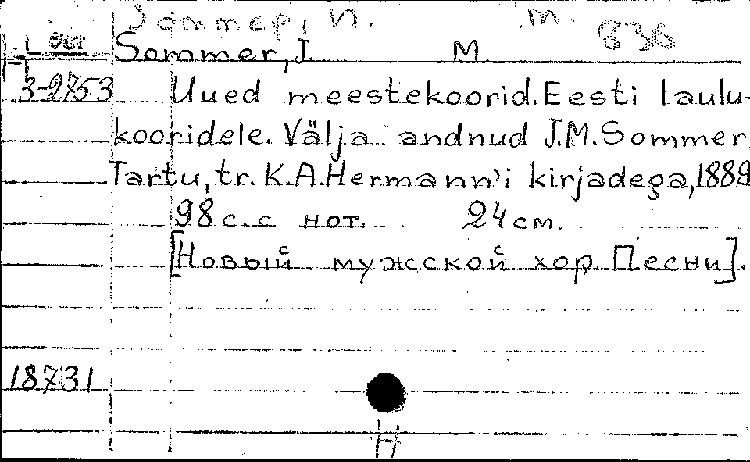 Зоммер, И. М. 838
Эст Sommer, J. M.
3-2753 Uued meestekoorid. Eesti laulu-
kooridele. Välja andnud J.M.Sommer
Tartu, tr. K.A.Hermann'i kirjadega, 1889
98 с. с нот. 24 см.
[Новый мужской хор. Песни].
18731
Н